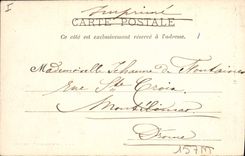 I
Imprimé
CARTE POSTALE
Ce côté est exclusivement réservé à l'adresse.
Mademoiselle Jehanne de Fontaines
Rue Ste Croix
Montélimar
Drôme
157